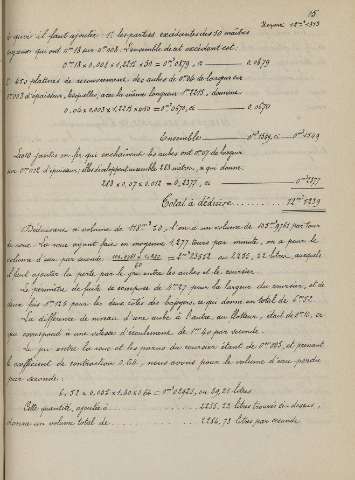 15
à quoi il faut ajouter : 1° les parties excédentes des 50 maîtres
qui ont 0m18 sur 0m008. L'ensemble de cet excédent est :
0m18 × 0,008 × 1,2215 × 50 = 0m3 0879, ci 0.0879
2° 450 platines de recouvrement des aubes de 0m06 de longueur sur
0m003 d'épaisseur, lesquelles, avec la même longueur 1m2215, donnent
0.06 × 0.003 × 1,2215 × = 0m3 0670, ci 0.0670
Ensemble 0m3 1549, ci 0m3 1549
Les parties en fer, qui enchaînent les aubes ont 0m07 de largeur
sur 0m012 d'épaisseur ; elles développent ensemble 283 mètres, ce qui donne
283 × 0,07 × 0,012 = 0,2377, ci 0m3 2377
Total à déduire 12m3 5239
Déduisant ce volume de 118m3 50, l'on a un volume de 105m3 9761 par tour
de roue. La roue ayant fait en moyenne 1,277 tours par minute, on a pour le
volume d'eau par seconde = 2m3 25522 ou 2255,22 litres, auxquels
il faut ajouter la perte par le jeu entre les aubes et le coursier.
Le périmètre de fuite se compose de 6m27 pour la largeur du coursier, et de
deux fois 0m125 pour les deux côtés des bajoyers, ce qui donne un total de 6m52.
La différence de niveau d'une aube à l'autre, au flotteur, était de 0m10, ce
qui correspond à une vitesse d'écoulement de 1m40 par seconde.
Le jeu entre la roue et les parois du coursier étant de 0m005, et prenant
le coefficient de contraction 0.64, nous avons pour le volume d'eau perdu
par seconde :
6,52 × 0.005 × 1.40 × 0.64 = 0m3 02925, ou 29,25 litres
Cette quantité, ajoutée à 2255,22 litres trouvés ci-dessus,
donne un volume total de 2284,73 litres par seconde